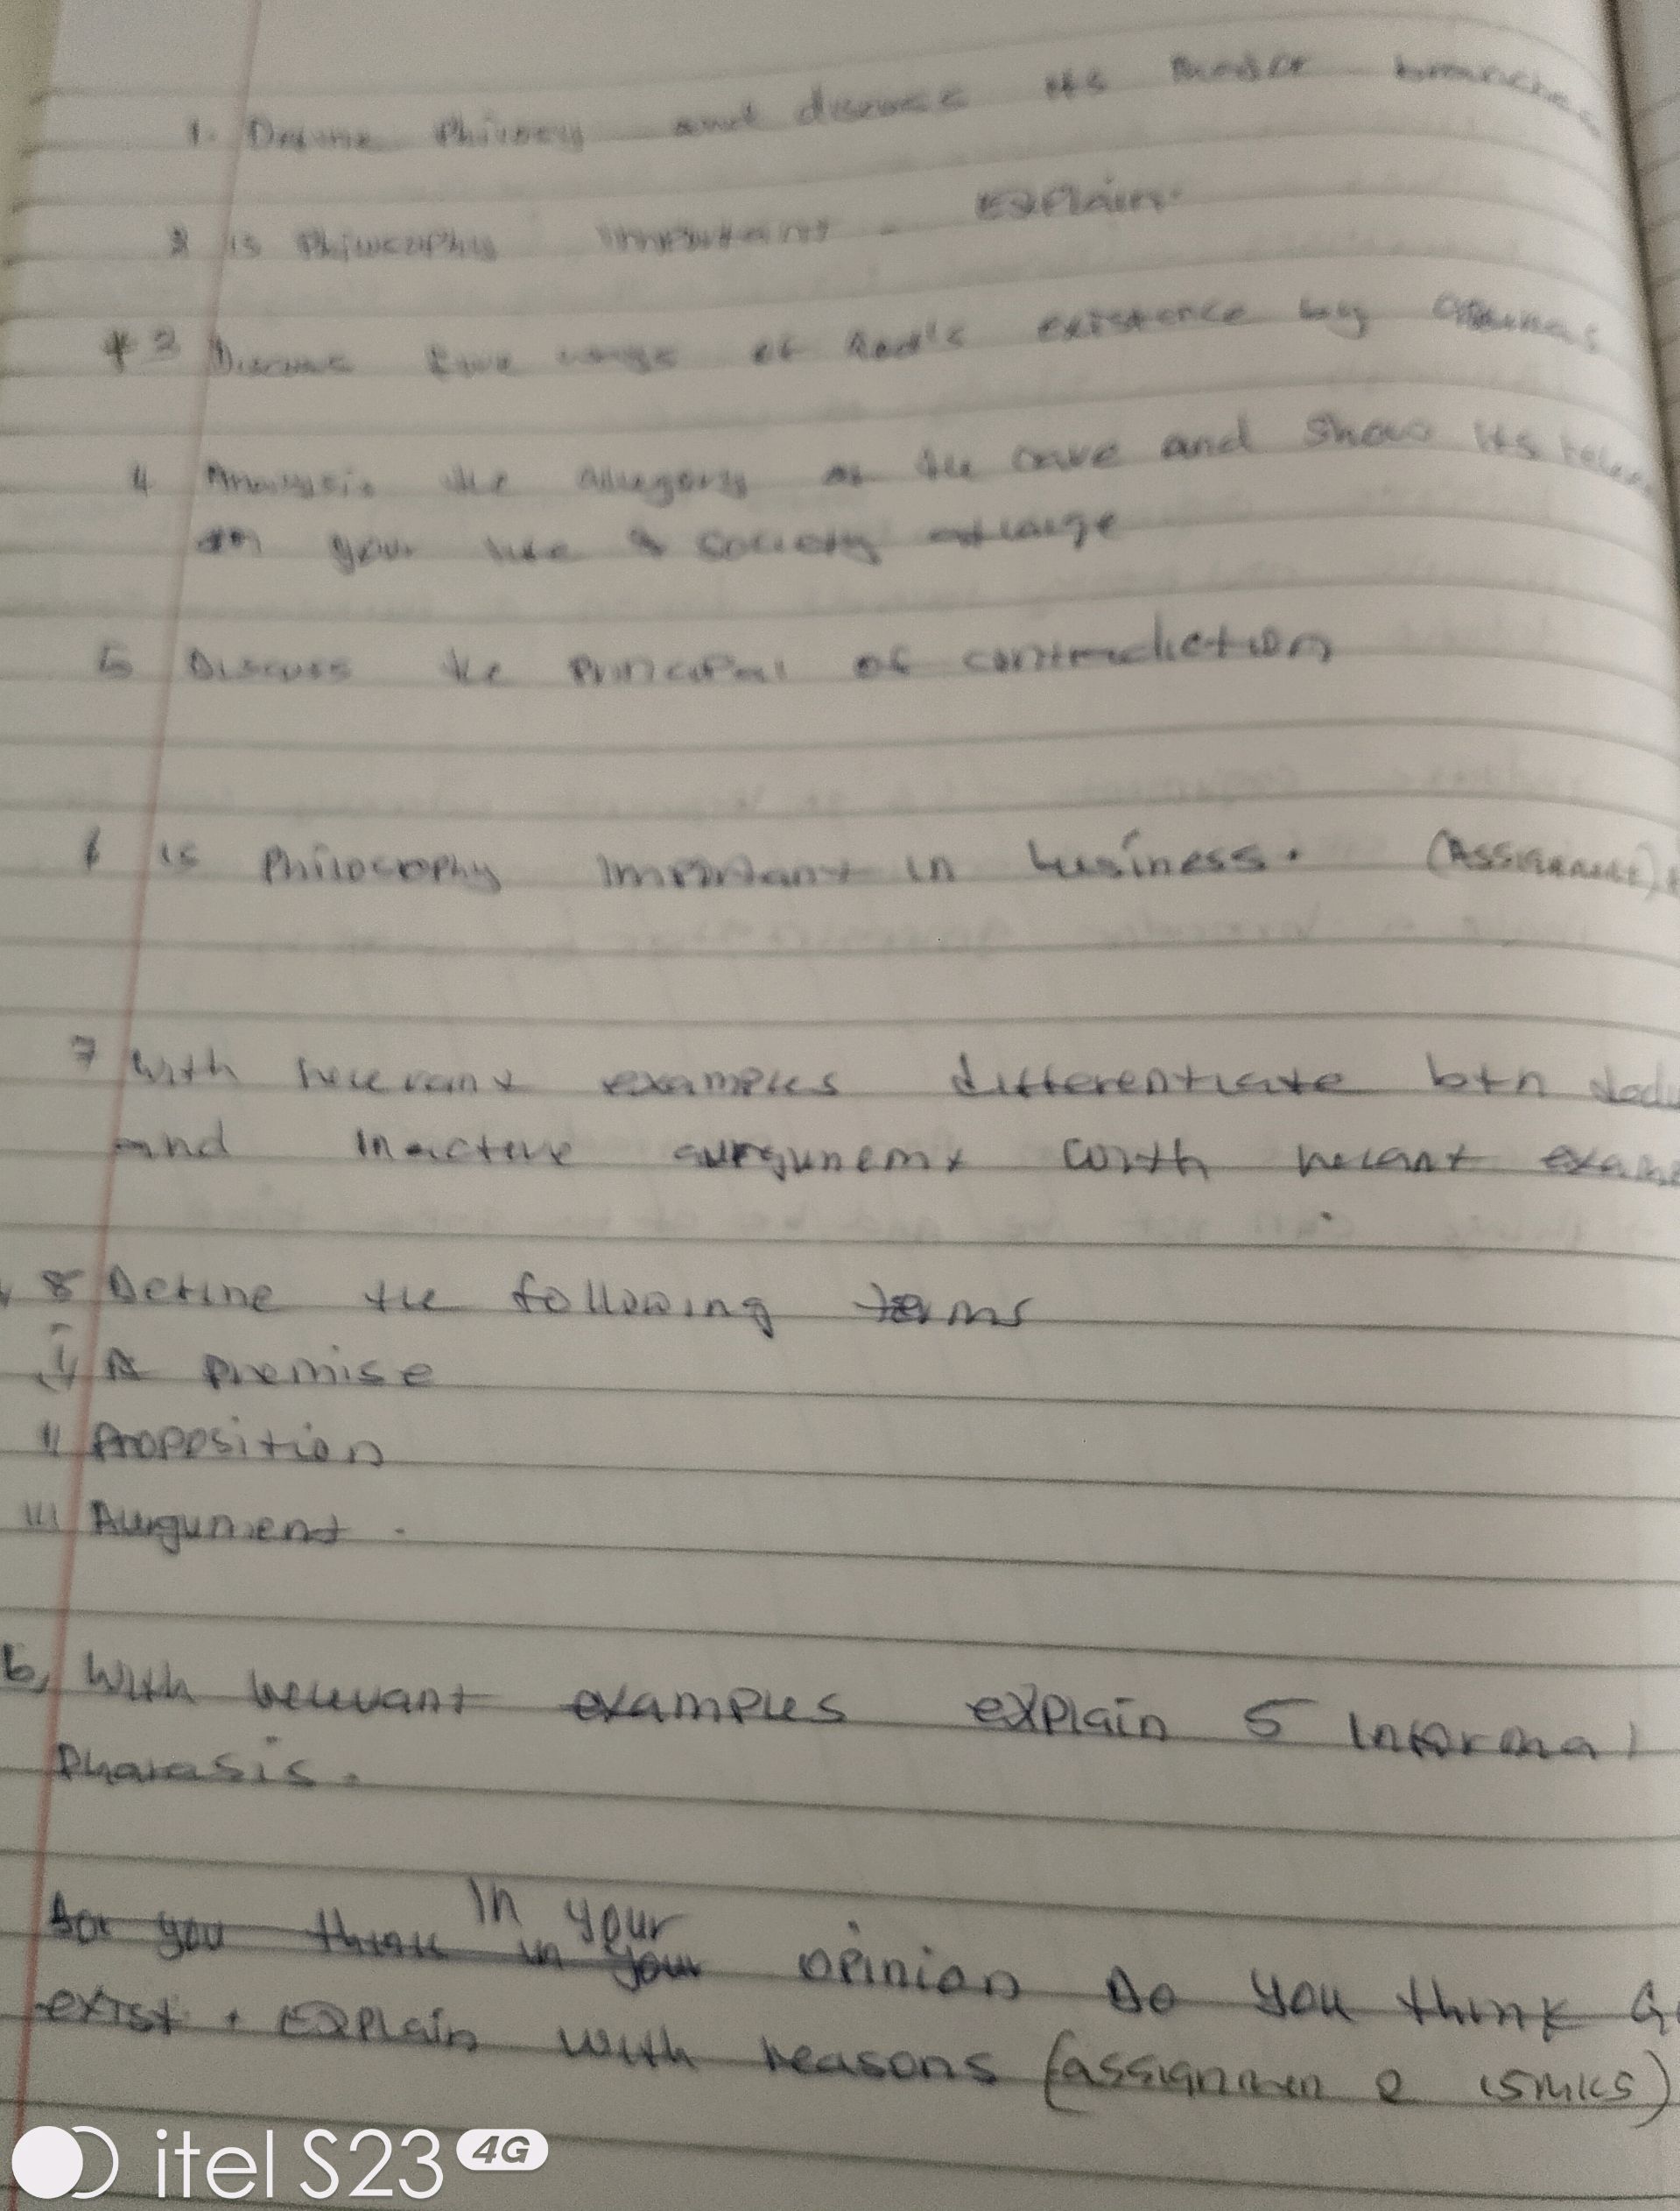 1. Define Philosophy and discuss its major branches
2 is Philosophy important . Explain.
3 Discuss five ways of God's existence by Aquinas
4 Analysis the allegory of the cave and show its
on your life & society at large
5 Discuss the Principal of contradiction
6 is Philosophy important in business. (Assignment)
7 With relevant examples differentiate btn
and inactive aurgunemt with
8 Define the following terms
i A premise
ii Proposition
iii Aurgument .
b, With relevant examples explain 5 informal
Pharasis.
In your
opinion Do you think
exist . Explain with reasons (assignmen 2 15mks)
itel S23 4G